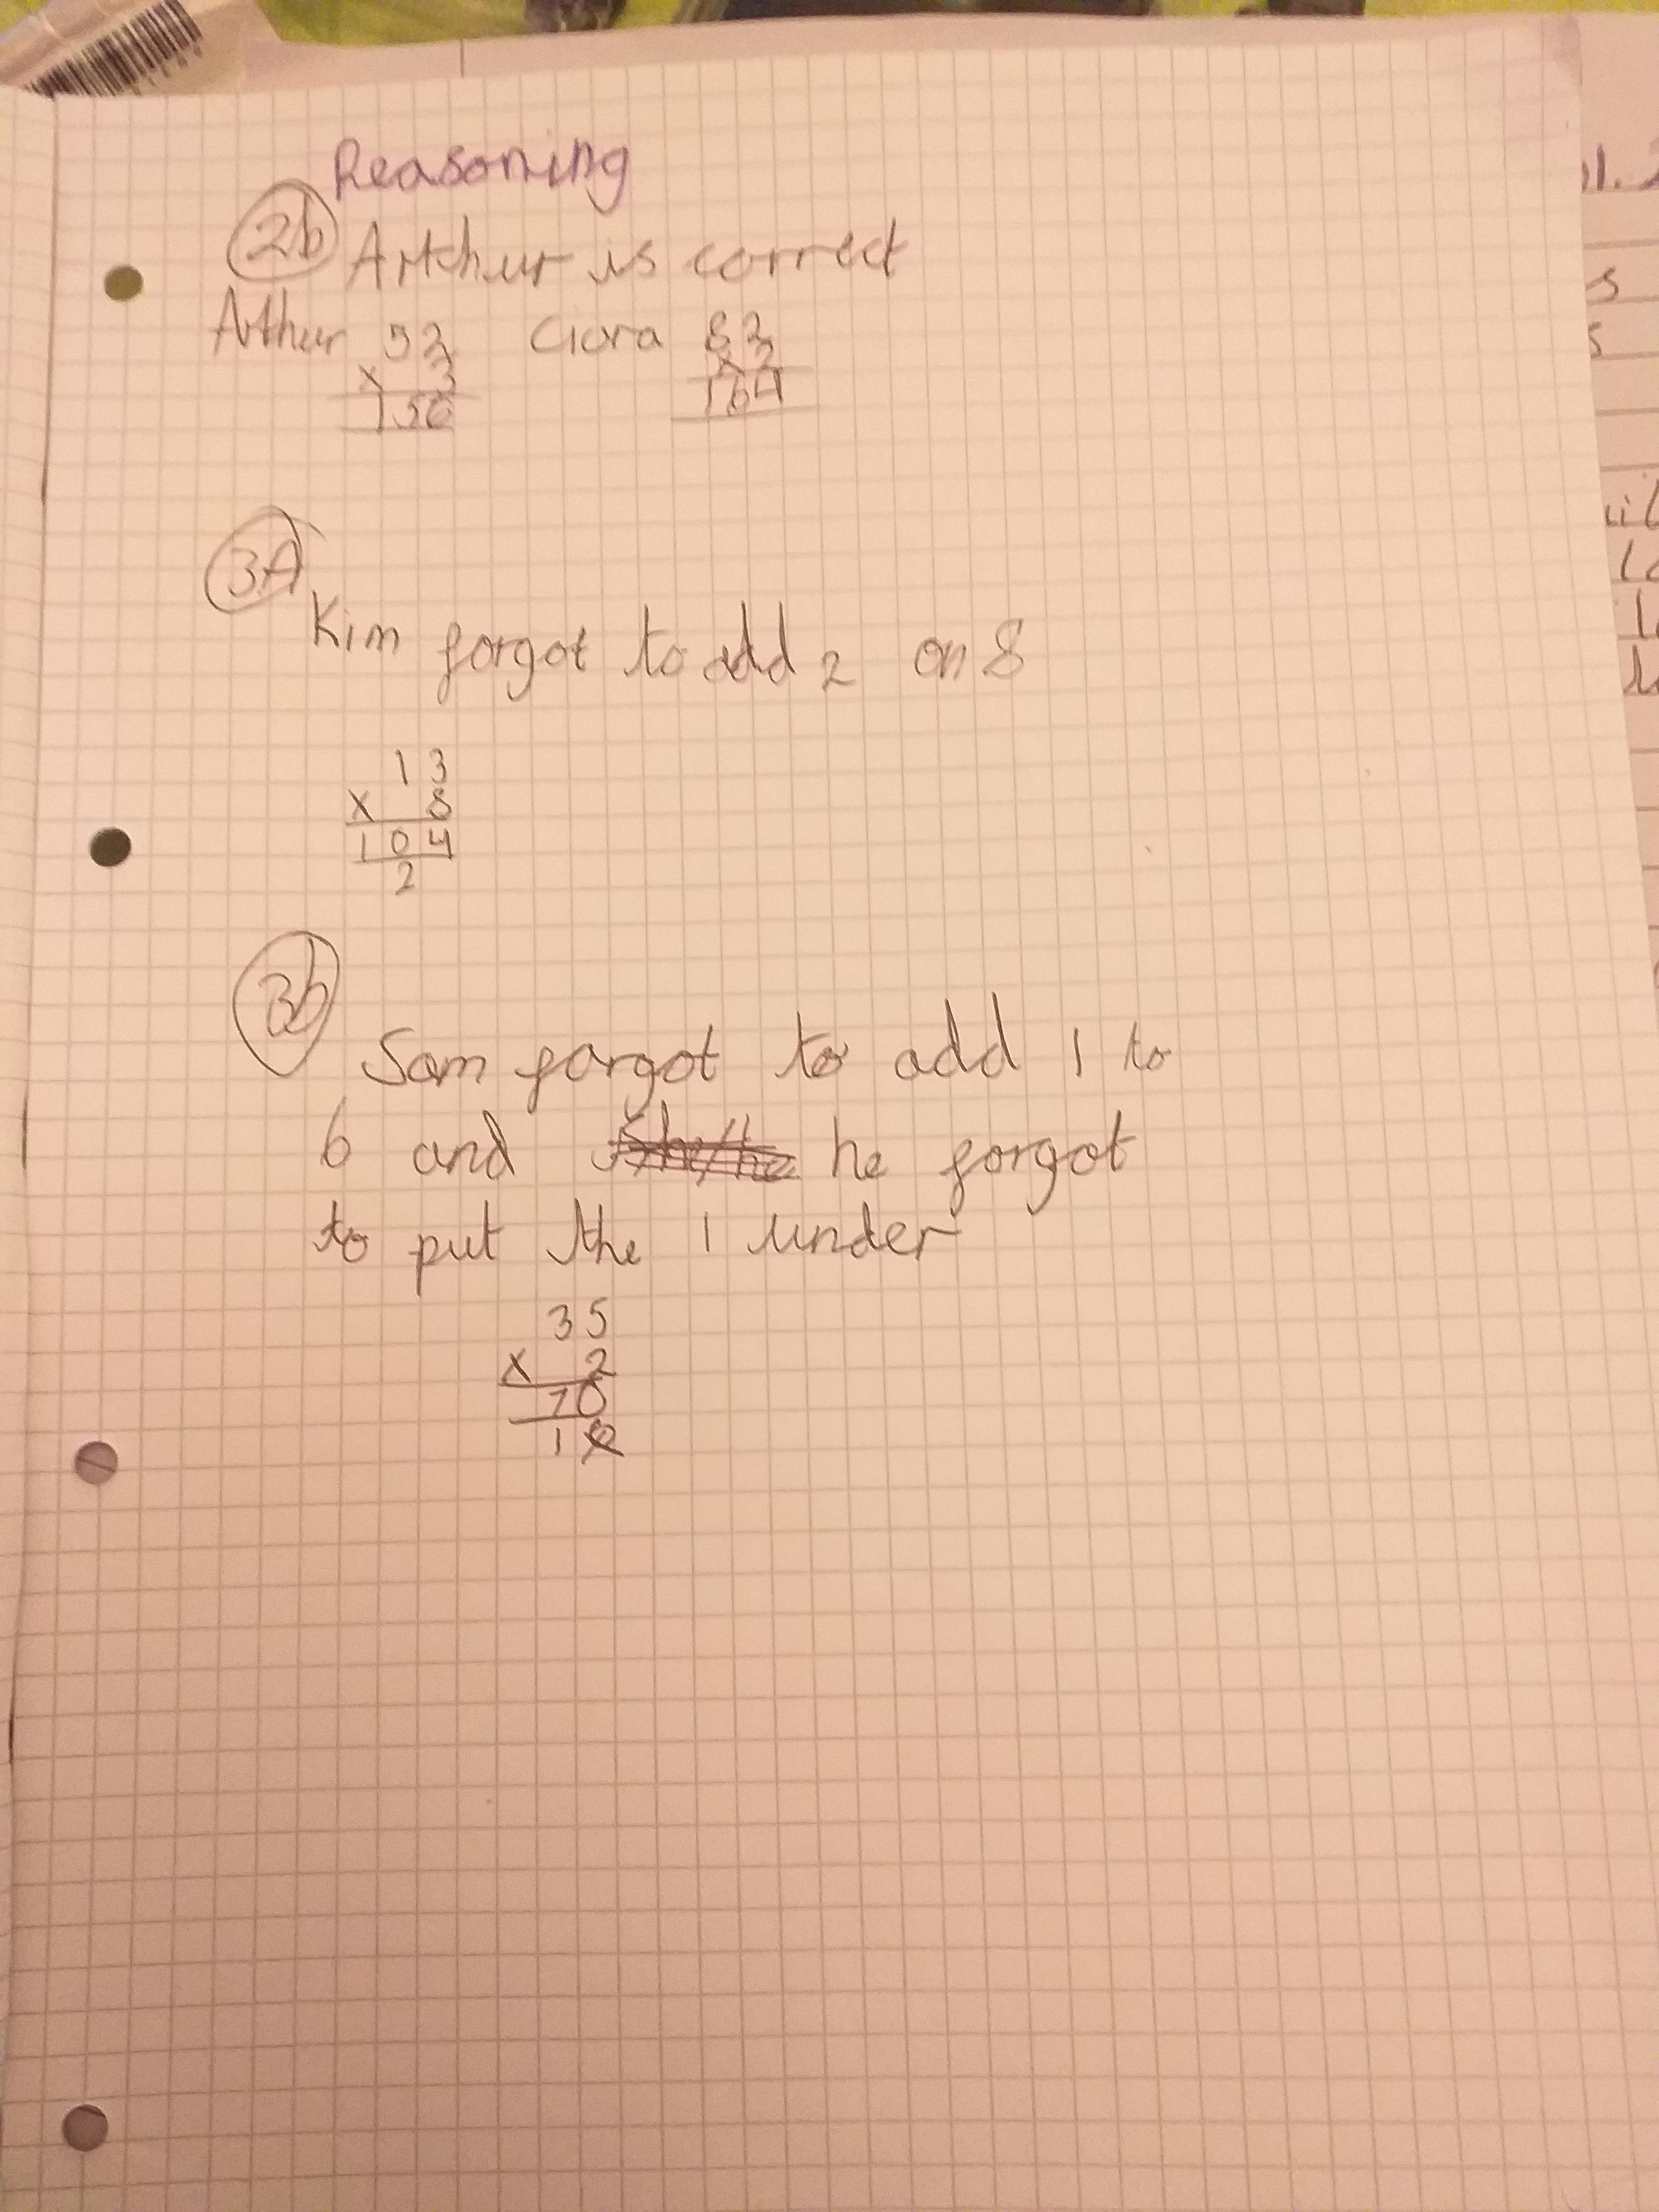 Reasoning
2b Arthur is correct
Arthur 52 Ciara 82
x 3 x 2
156 164
3A
Kim forgot to add 2 on 8
13
x 8
104
2
3b
Sam forgot to add 1 to
6 and he forgot
to put the 1 under
35
x 2
70
1